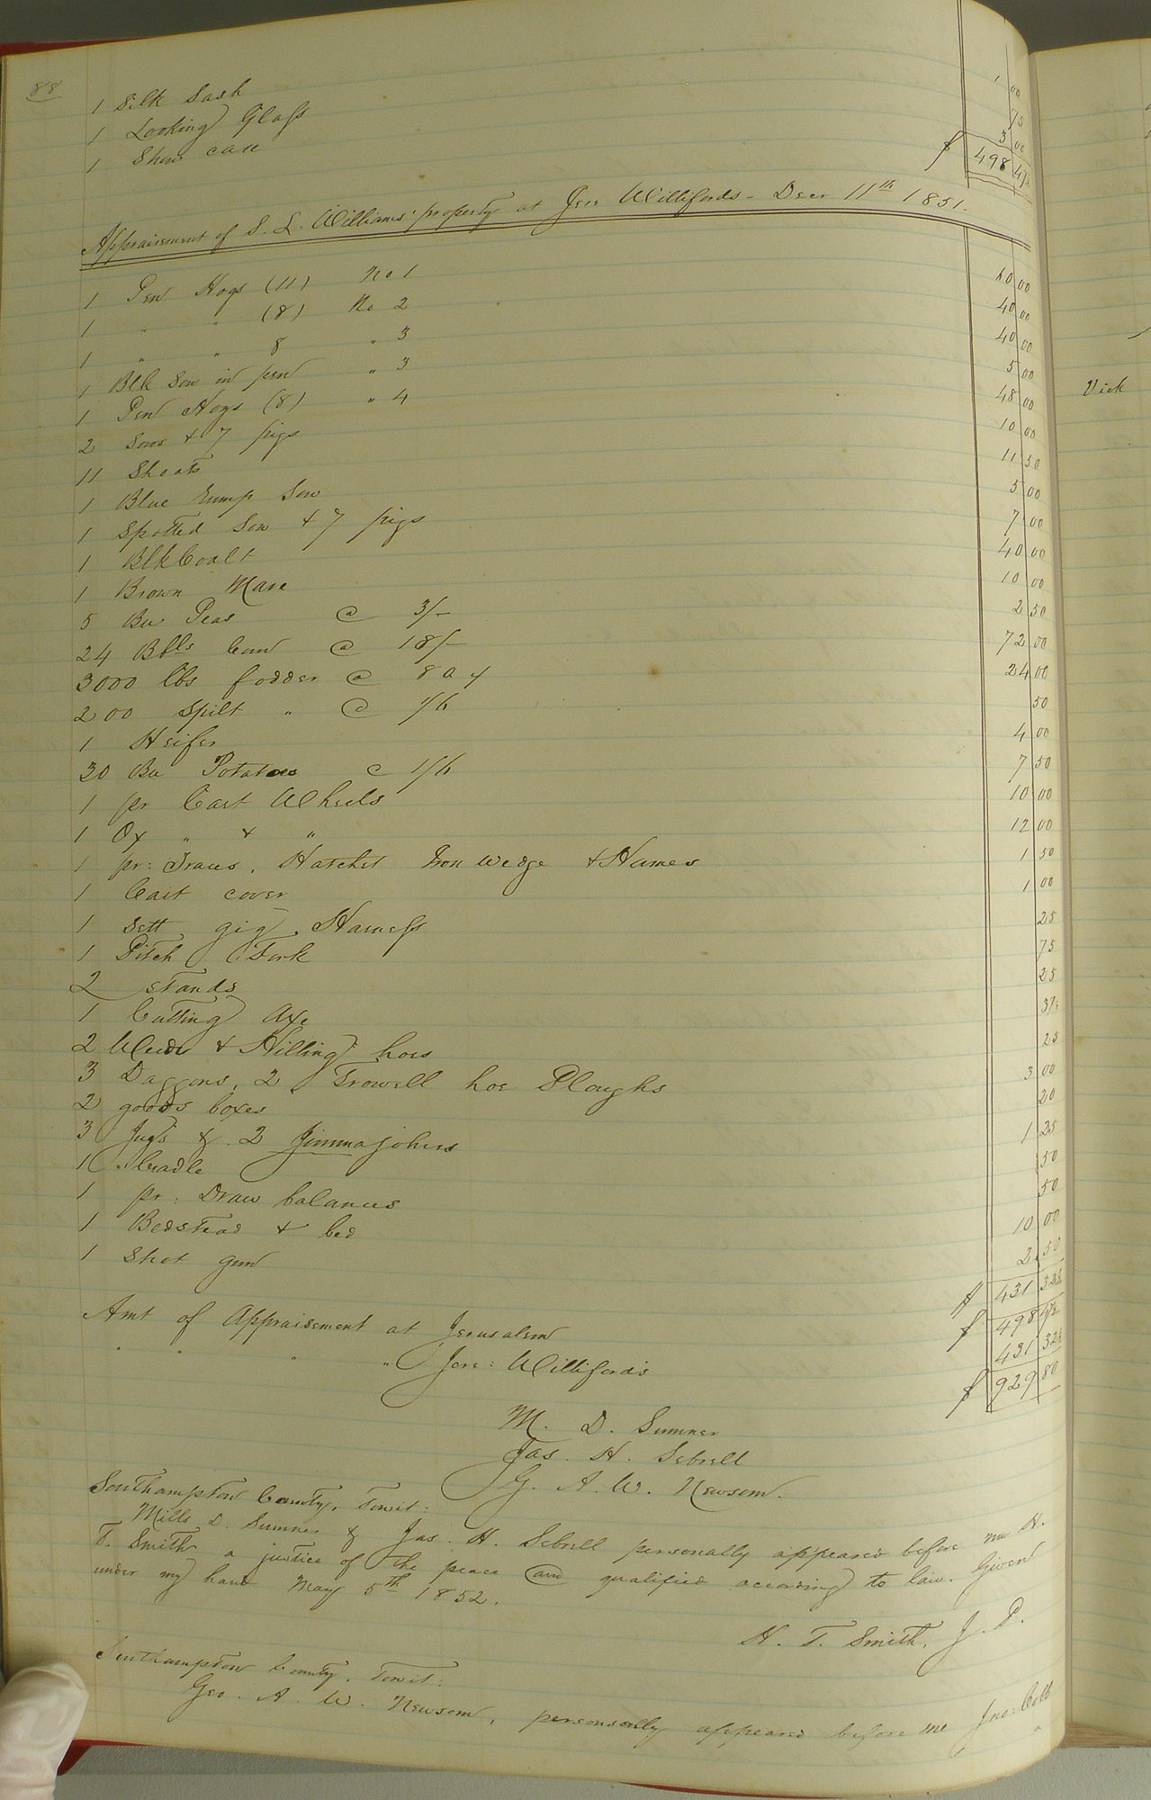 88
1 Silk Sash 1 00
1 Looking Glass 75
1 Show case 3 00
$ 498 47½
Appraisement of S. L. Williams' property at Jere Willifords - Decr 11th 1851.
1 Pen Hogs (11) No 1 60 00
1 " " (8) No 2 40 00
1 " " 8 " 3 40 00
1 Blk Sow in pen " 3 5 00
1 Pen Hogs (8) " 4 48 00
2 Sows & 7 pigs 10 00
11 Shoats 11 50
1 Blue rump Sow 5 00
1 Spotted Sow & 7 pigs 7 00
1 Blk Coalt 40 00
1 Brown Mare 10 00
5 Bu Peas @ 3/- 2 50
24 Bbls Corn @ 18/- 72 00
3000 lbs fodder @ 24 00
200 Spilt " @ 1/6 50
1 Heifer 4 00
30 Bu Potatoes @ 1/6 7 50
1 pr Cart Wheels 10 00
1 Ox " & " 12 00
1 pr: Traces, Hatchet Iron wedge & Hames 1 50
1 Cart cover 1 00
1 Sett gig Harness 25
1 Pitch Fork 75
2 Stands 25
1 Cutting Axe 37½
2 Weed & Hilling hoes 25
3 Daggons, 2 Trowell hoe Ploughs 3 00
2 goods boxes 20
3 Jugs & 2 Jimmajohns 1 25
1 Cradle 50
1 pr: Draw balances 50
1 Bedstead & bed 10 00
1 Shot gun 2 50
$ 431 32½
Amt of Appraisement at Jerusalem $ 498 47½
" " " " Jere: Williford's 431 32½
$ 929 80
M. D. Sumner
Jas. H. Sebrell
G. A. W. Newsom.
Southampton County, Towit:
Mills D. Sumner & Jas. H. Sebrell personally appeared before me H.
T. Smith a justice of the peace and qualified according to law. Given
under my hand May 5th 1852.
H. T. Smith, J. P.
Southampton County, Towit:
Geo. A. W. Newsom, personally appeared before me Jno: Cobb
Vick